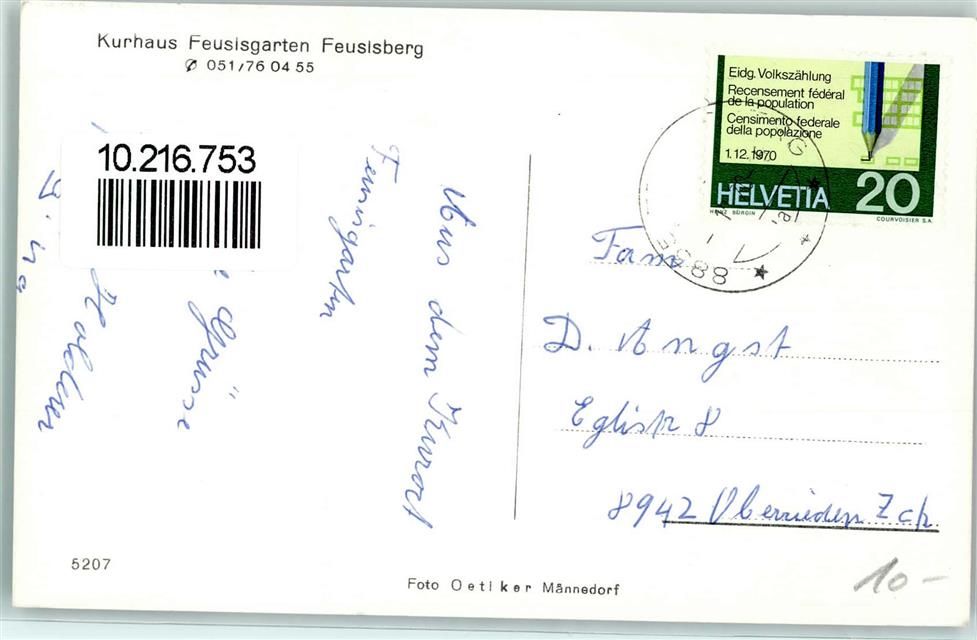 Kurhaus Feusisgarten Feusisberg
✆ 051/76 04 55
Eidg. Volkszählung
Recensement fédéral
de la population
Censimento federale
della popolazione
1.12.1970
HELVETIA 20
HEINZ BÜRGIN COURVOISIER S.A.
10.216.753
Aus dem Kurort
Feusisgarten
Grüsse
Fam
D. Angst
Eglistr 8
8942 Oberrieden Zch.
5207
Foto Oetiker Männedorf
10-